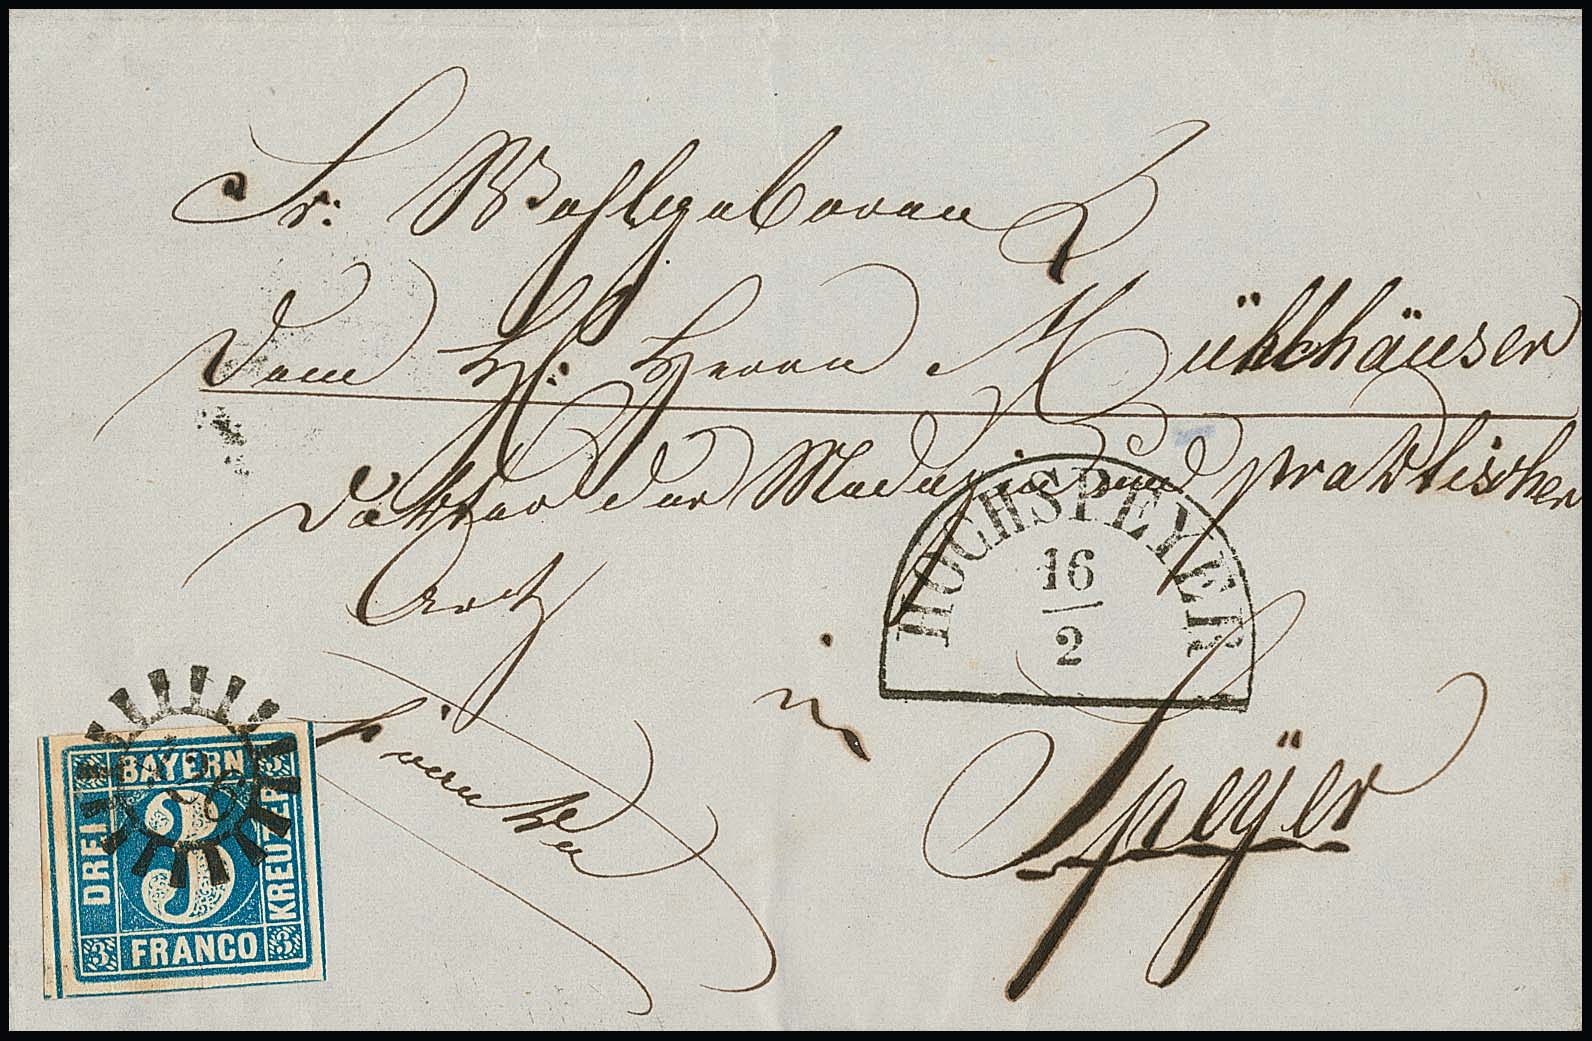 Sr. Wohlgeboren
Dem H. Herrn Mühlhäuser
Doktor der Medezin und praktischer
Arzt
HOCHSPEYER
16
2
franko
in
Speÿer
BAYERN
DREI
KREUZER
FRANCO
3
3
3
3